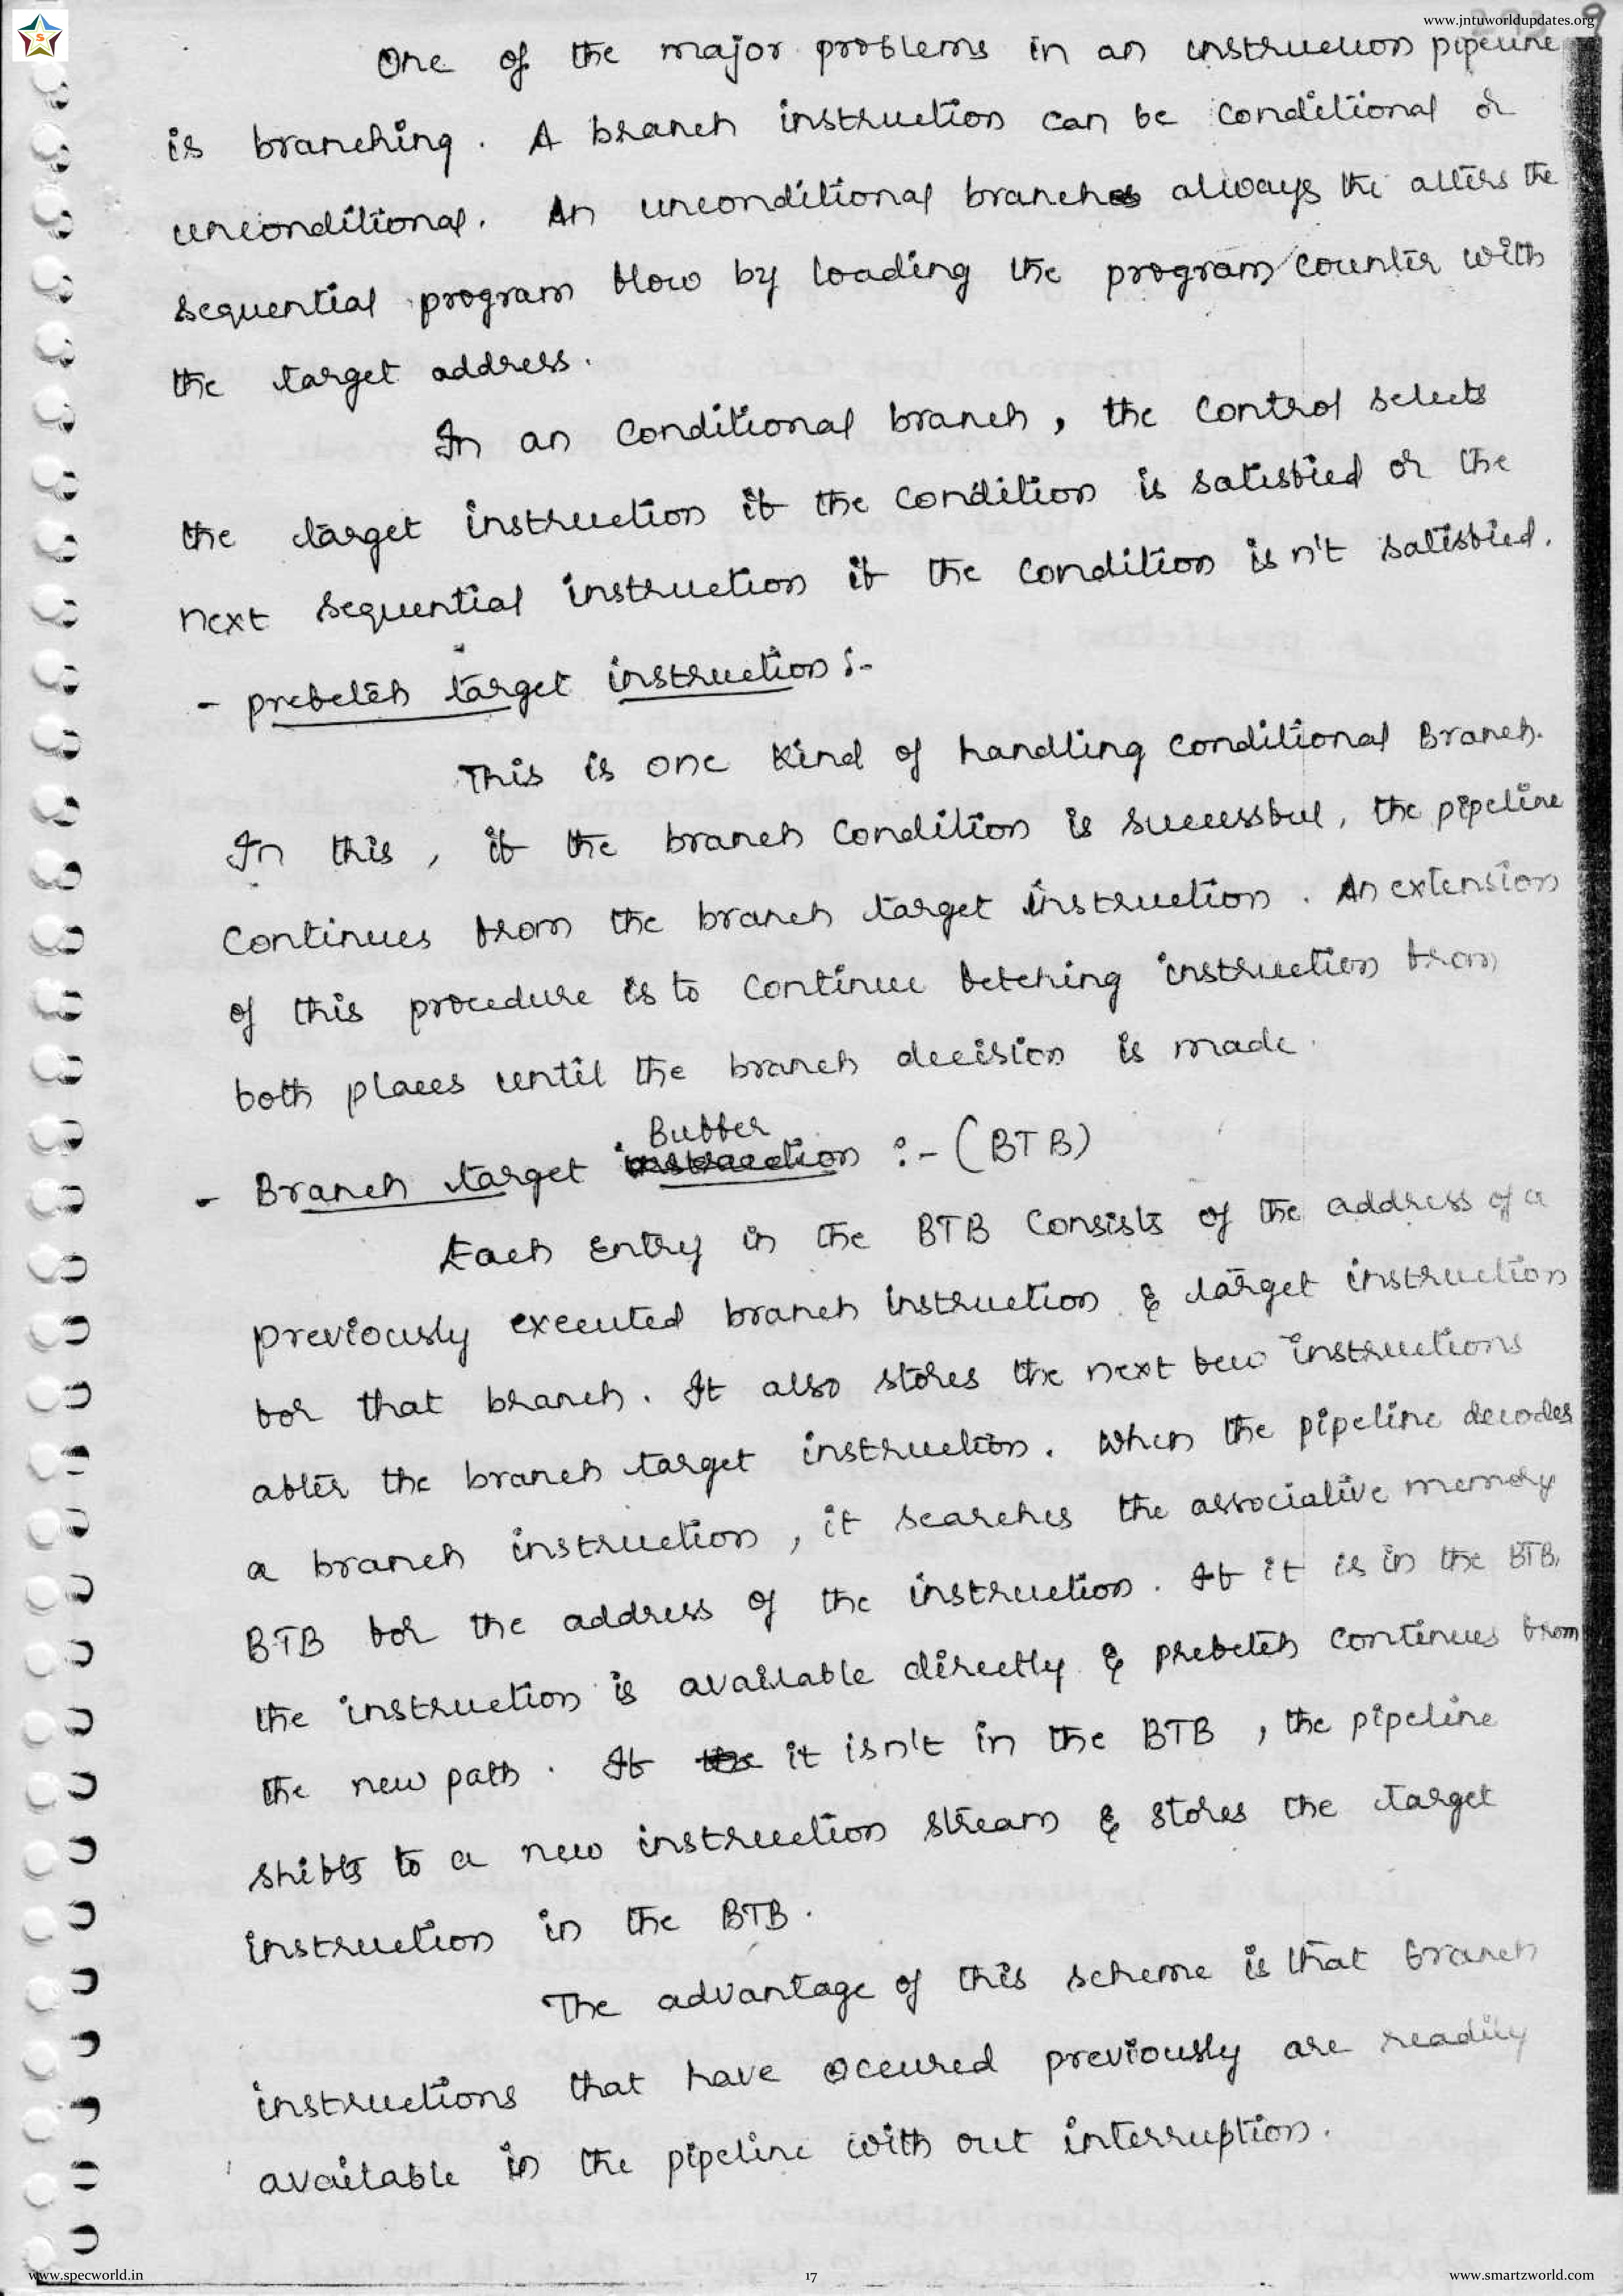 www.jntuworldupdates.org
9
S
One of the major problems in an instruction pipeline
is branching. A branch instruction can be conditional or
unconditional. An unconditional branches always the alters the
sequential program flow by loading the program counter with
the target address.
In an conditional branch, the control selects
the target instruction if the condition is satisfied or the
next sequential instruction if the condition isn't satisfied.
- prefetch target instruction :-
This is one kind of handling conditional Branch.
In this, if the branch condition is successful, the pipeline
continues from the branch target instruction. An extension
of this procedure is to continue fetching instruction from
both places until the branch decision is made.
Buffer
- Branch target instruction :- (BTB)
Each entry in the BTB consists of the address of a
previously executed branch instruction & target instruction
for that branch. It also stores the next few instructions
after the branch target instruction. When the pipeline decodes
a branch instruction, it searches the associative memory
BTB for the address of the instruction. If it is in the BTB,
the instruction is available directly & prefetch continues from
the new path. If the it isn't in the BTB, the pipeline
shifts to a new instruction stream & stores the target
instruction in the BTB.
The advantage of this scheme is that branch
instructions that have occured previously are readily
available in the pipeline with out interruption.
www.specworld.in
17
www.smartzworld.com